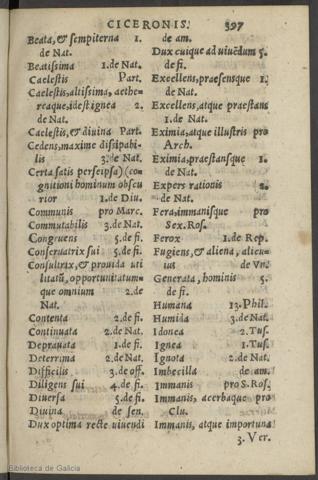 CICERONIS. 397
Beata, & sempiterna 1.
de Nat.
Beatissima 1.de Nat.
Caelestis Part.
Caelestis, altissima, aethe-
reaque, idest ignea 2.
de Nat.
Caelestis, & diuina Part.
Cedens, maxime dissipabi-
lis 3.de Nat.
Certa satis perse ipsa) (co-
gnitioni hominum obscu
rior 1.de Diu.
Communis pro Marc.
Commutabilis 3.de Nat.
Congruens 5.de fi.
Conseruatrix sui 5.de fi.
Consultrix, & prouida uti
litatũ, opportunitatum-
que omnium 2.de
Nat.
Contenta 2.de fi.
Continuata 2.de Nat.
Deprauata 1.de fi.
Deterrima 2.de Nat.
Difficilis 3.de off.
Diligens sui 4.de fi.
Diuersa 5.de fi.
Diuina de sen.
Dux optima recte uiuendi
de am.
Dux cuique ad uiuẽdum 5.
de fi.
Excellens, praesensque 1.
de Nat.
Excellens, atque praestans
1.de Nat.
Eximia, atque illustris pro
Arch.
Eximia, praestansque 1.
de Nat.
Expers rationis 2.
de Nat.
Fera, immanisque pro
Sex. Ros.
Ferox 1.de Rep.
Fugiens, & aliena, alicu-
ius de Vn.
Generata, hominis 5.
de fi.
Humana 13.Phil.
Humida 3.de Nat.
Idonea 2.Tus.
Ignea 1.Tus.
Ignota 2.de Nat.
Imbecilla de am.
Immanis pro S.Ros.
Immanis, acerbaque pro
Clu.
Immanis, atque importuna
3. Ver.
Biblioteca de Galicia